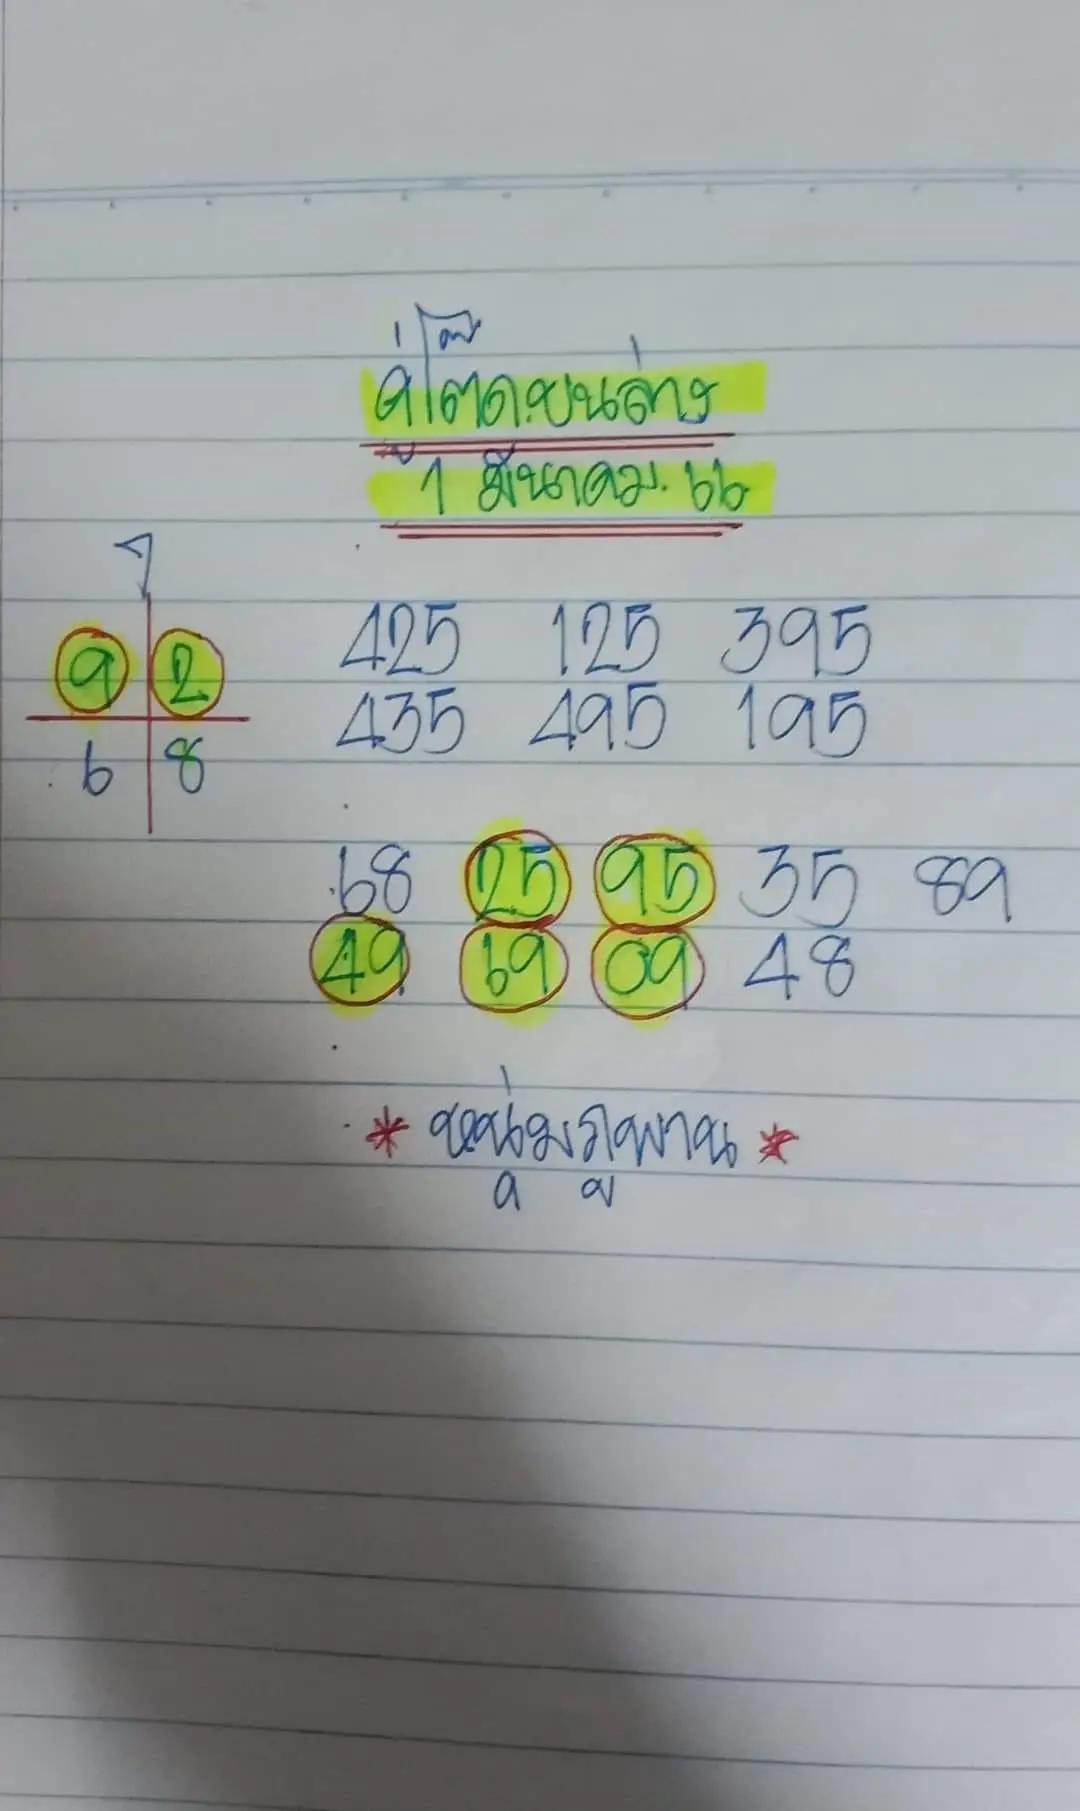 คู่โต๊ดบนล่าง
1 มีนาคม. 66
9 2
6 8
425 125 395
435 495 195
68 25 95 35 89
49 69 09 48
* หนุ่มภูพาน *